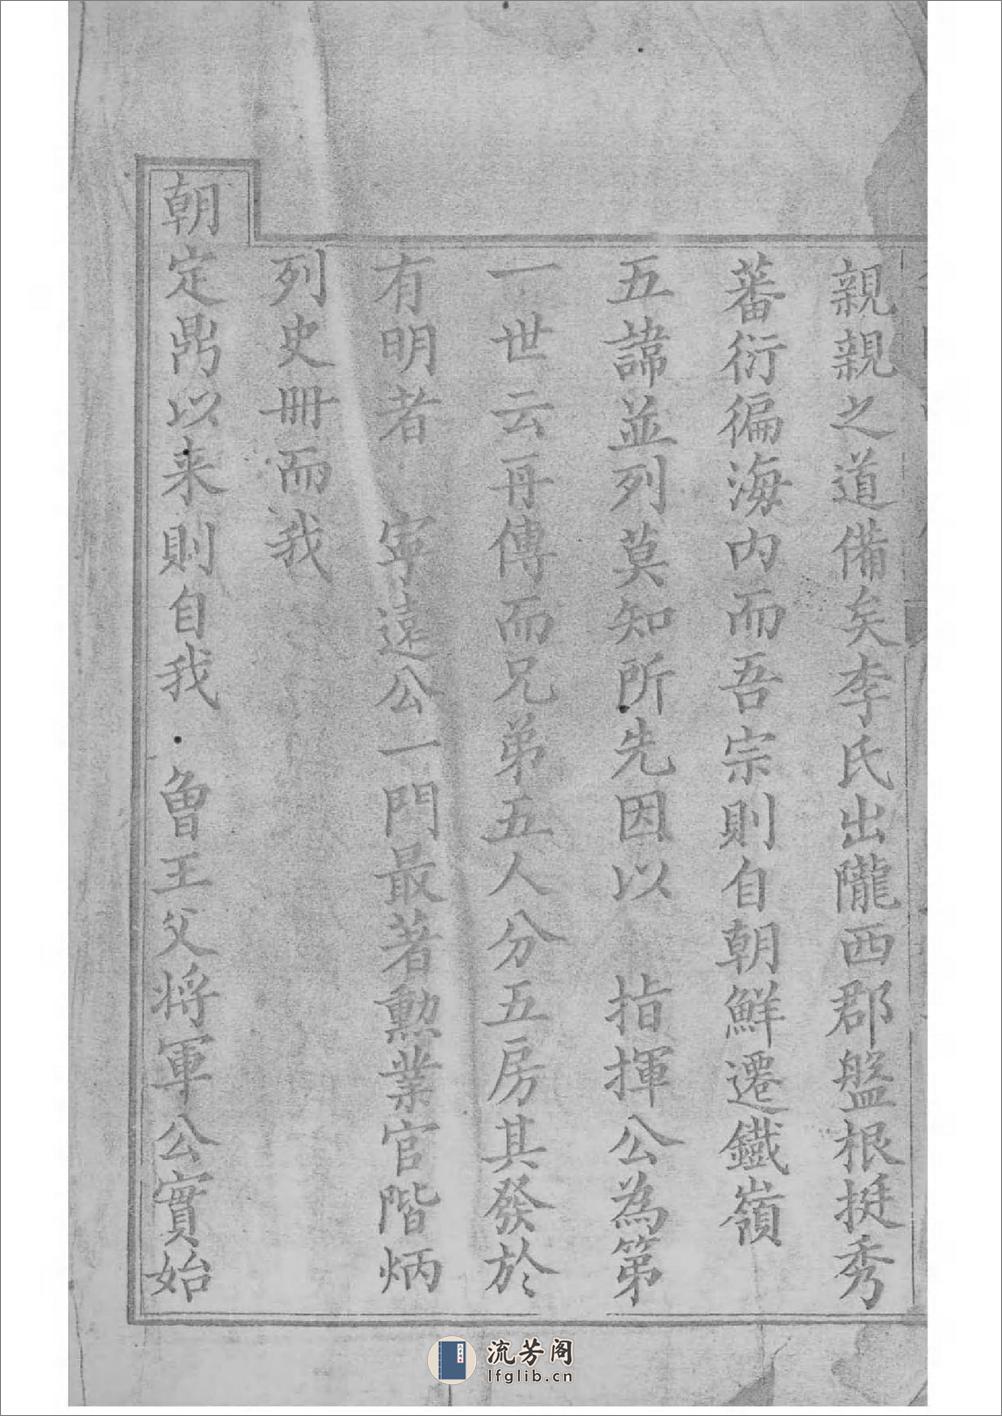 親親之道備矣李氏出隴西郡盤根挺秀
蕃衍徧海内而吾宗則自朝鮮遷鐵嶺
五諱並列莫知所先因以　指揮公為第
一世云再傳而兄弟五人分五房其發於
有明者　寧遠公一門最著勲業官階炳
列史冊而我
朝定鼎以来則自我　魯王父将軍公實始
流芳阁
lfglib.cn